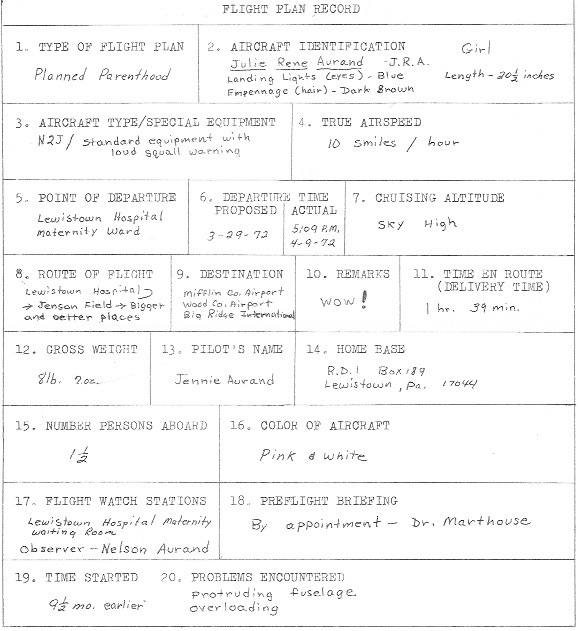 FLIGHT PLAN RECORD
1. TYPE OF FLIGHT PLAN
Planned Parenthood
2. AIRCRAFT IDENTIFICATION Girl
Julie Rene Aurand - J.R.A.
Landing Lights (eyes) - Blue Length - 20½ inches
Empennage (hair) - Dark Brown
3. AIRCRAFT TYPE/SPECIAL EQUIPMENT
N2J / Standard equipment with
loud squall warning
4. TRUE AIRSPEED
10 Smiles / hour
5. POINT OF DEPARTURE
Lewistown Hospital
Maternity Ward
6. DEPARTURE TIME
PROPOSED ACTUAL
3-29-72 5:09 P.M.
4-9-72
7. CRUISING ALTITUDE
Sky High
8. ROUTE OF FLIGHT
Lewistown Hospital
→ Jenson Field → Bigger
and better places
9. DESTINATION
Mifflin Co. Airport
Wood Co. Airport
Big Ridge International
10. REMARKS
WOW!
11. TIME EN ROUTE
(DELIVERY TIME)
1 hr. 39 min.
12. GROSS WEIGHT
8lb. 7oz.
13. PILOT'S NAME
Jennie Aurand
14. HOME BASE
R.D.1 Box 189
Lewistown, Pa. 17044
15. NUMBER PERSONS ABOARD
1½
16. COLOR OF AIRCRAFT
Pink & White
17. FLIGHT WATCH STATIONS
Lewistown Hospital Maternity
Waiting Room
Observer - Nelson Aurand
18. PREFLIGHT BRIEFING
By appointment - Dr. Marthouse
19. TIME STARTED
9½ mo. earlier
20. PROBLEMS ENCOUNTERED
Protruding fuselage
overloading